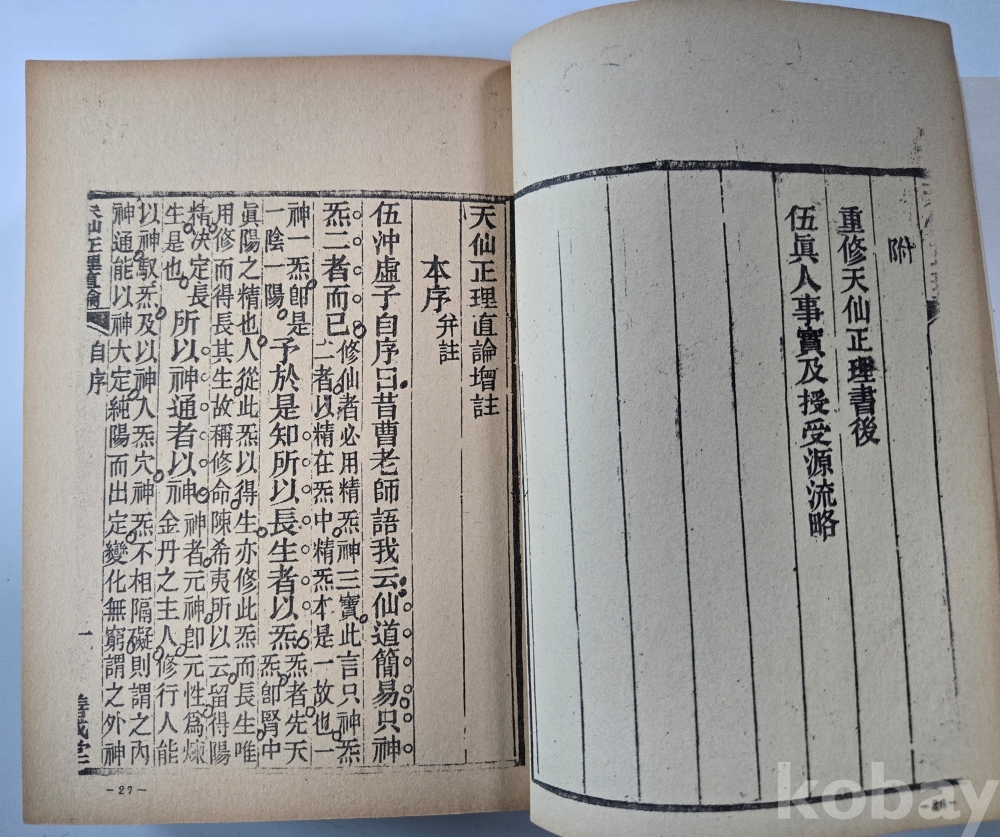 附
重修天仙正理書後
伍眞人事實及授受源流略
-26-
天仙正理直論增註
本序 弁註
伍沖虛子自序曰昔曹老師語我云仙道簡易只神
炁二者而已
修仙者必用精炁神三寶此言只神炁
二者以精在炁中精炁本是一故也一
神一炁卽是
一陰一陽
予於是知所以長生者以炁
炁者先天
炁卽腎中
眞陽之精也人從此炁以得生亦修此炁而長生唯
用修而得長其生故稱修命陳希夷所以云留得陽
精決定長
生是也
所以神通者以神
神者元神卽元性爲煉
金丹之主人修行人能
以神馭炁及以神入炁穴神炁不相隔礙則謂之內
神通能以神大定純陽而出定變化無窮謂之外神
天仙正理直論 自序 一 善成堂
-27-
kobay